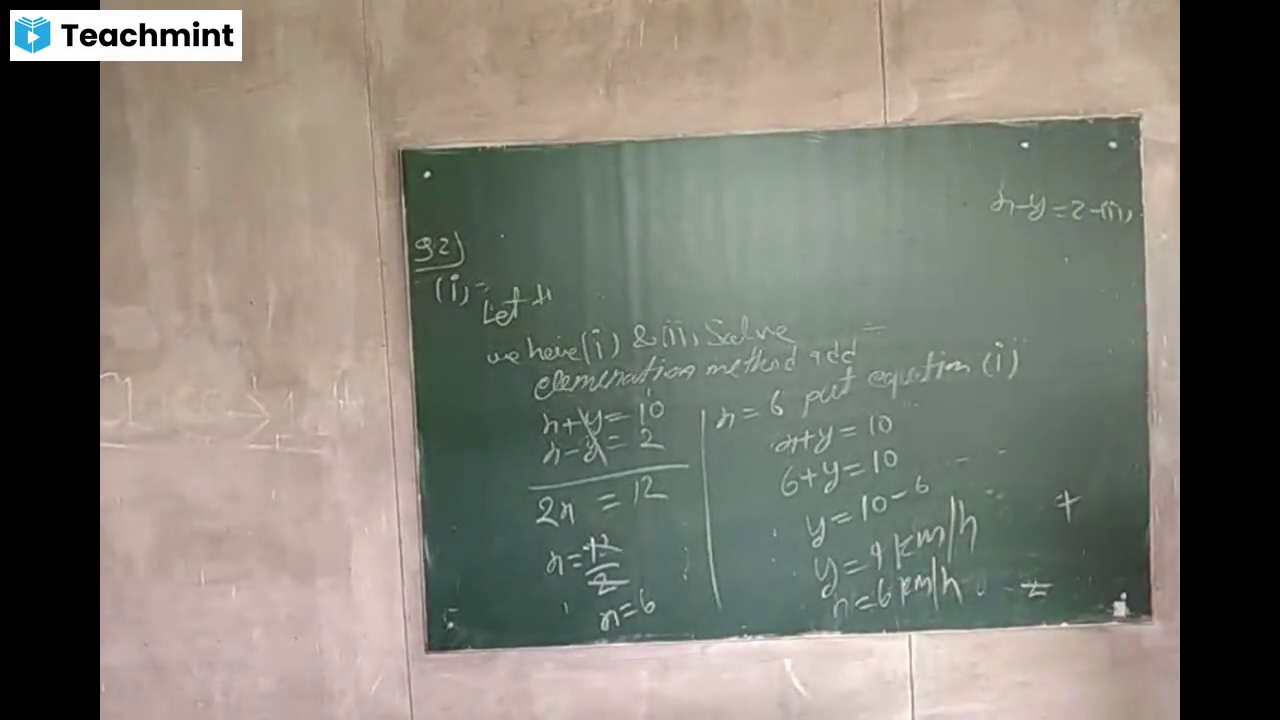 Teachmint
x-y=2-(ii)
Q2)
(i)-
Let
we have (i) & (ii) Solve
elemenation method add
x+y=10
x-y=2
2x=12
x=12/2
x=6
x=6 put equation (i)
x+y=10
6+y=10
y=10-6
y=4 km/h
x=6 km/h